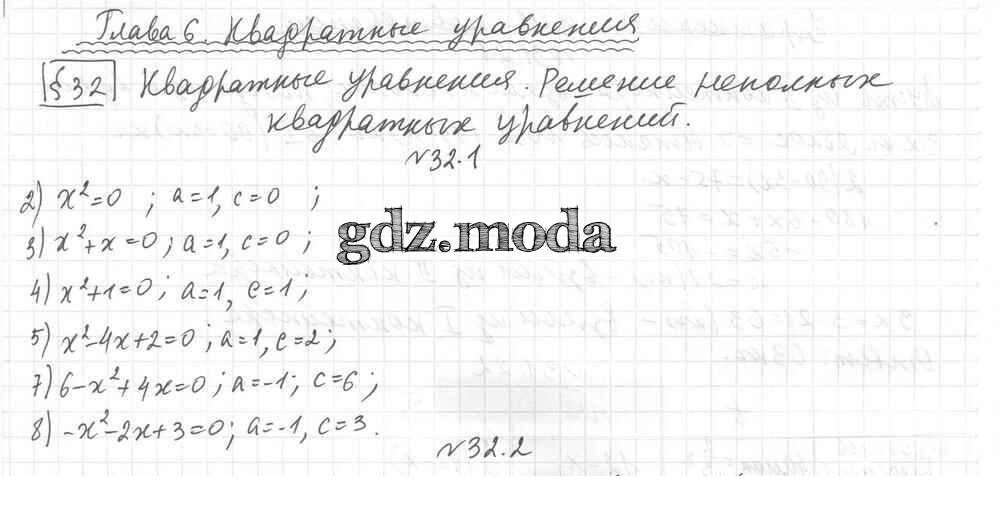 Глава 6. Квадратные уравнения
§32 Квадратные уравнения. Решение неполных
квадратных уравнений.
№32.1
2) x²=0 ; a=1, c=0 ;
3) x²+x=0; a=1, c=0 ;
gdz.moda
4) x²+1=0; a=1, c=1;
5) x²-4x+2=0; a=1, c=2;
7) 6-x²+4x=0; a=-1; c=6;
8) -x²-2x+3=0; a=-1, c=3.
№32.2